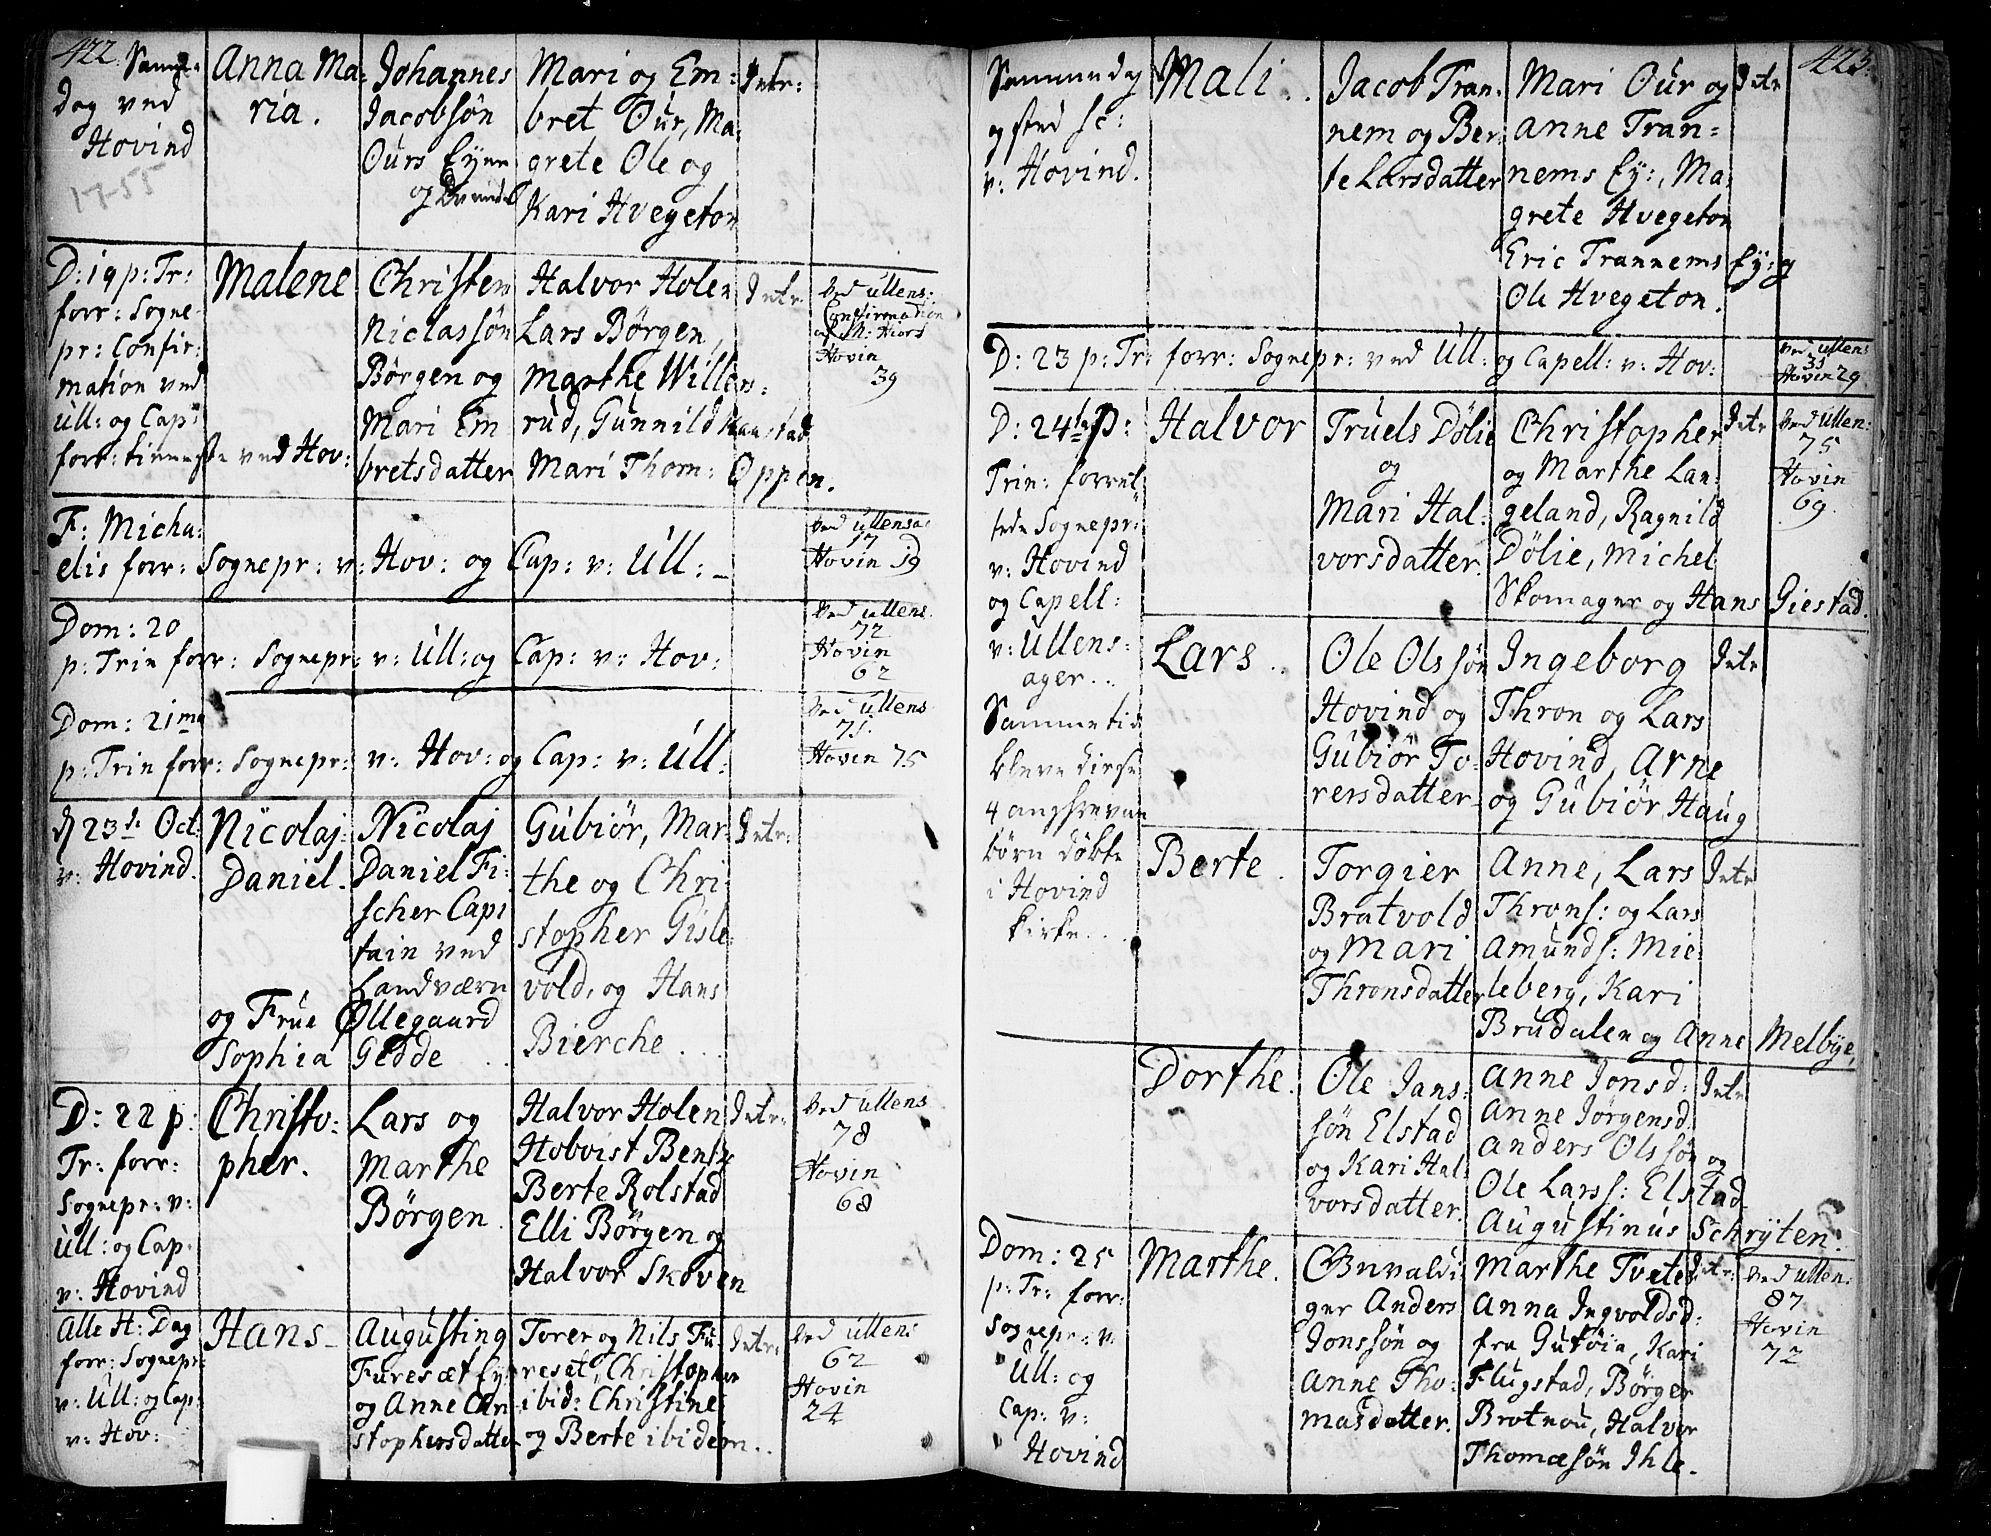 422. Samme
Dag ved
Hovind
1755
Anna Ma:
ria.
Johannes
Jacobsön
Ours Eyer
og Qvindes
Mari og Em:
bret Our, Ma:
grete Ole og
Kari Hvegeton
D: 19 p: Tr:
forr: Sogne
pr: Confir:
mation ved
Ull: og Cap:
forr: tieneste ved Hov:
Malene
Christen
Niclassön
Börgen og
Mari Em
bretsdatter
Halvor Holen
Lars Börgen,
Marthe Willers:
rud, Gunnild Kaastad
Mari Thom: Oppen.
Ved Ullens:
Confirmation
Hovin
39
F: Micha:
elis forr: Sognepr: v: Hov: og Cap: v: Ull: _
Ved Ullensa:
17
Hovin 19
Dom: 20
p: Trin forr: Sognepr: v: Ull: og Cap: v: Hov:
Ved Ullens.
72
Hovin
62
Dom: 21ma
p: Trin forr: Sognepr: v: Hov: og Cap: v: Ull:
Ved Ullens
71.
Hovin 75
d 23de Oct:
v: Hovind.
Nicolaj:
Daniel.
Nicolaj
Daniel Fi:
scher Capi
tain ved
Landværn
og Frue Øllegaard
Sophia Gedde
Gubiör, Mar:
the og Chri
stopher Gisle
vold, og Hans
Bierche
D: 22 p:
Tr: forr:
Sognepr: v:
Ull: og Cap.
v: Hovind
Christo:
pher.
Lars og
Marthe
Börgen.
Halvor Holen
Hobvist Bente
Berte Rolstad
Elli Börgen og
Halvor Skoven
Ved Ullens
78
Hovin
68
Alle H: Dag
forr: Sognepr:
v: Ull: og Cap:
v: Hov:
Hans_
Augusting
Furesæt Ey:
og Anne Chri
stophersdatter
Torer og Nils Fu:
reset, Christopher
ibid: Christine
og Berte ibidem..
Ved Ullens
62
Hovin
24
423.
Samme dag
og sted
v: Hovind.
Mali..
Jacob Tran:
nem og Ber:
te Larsdatter
Mari Our og
Anne Tran=
nems Ey:, Ma:
grete Hvegeton
Eric Trannems Ey: og
Ole Hvegeton.
D: 23 p: Tr: forr: Sognepr: ved Ull: og Capell: v: Hov:
Ved Ullens
33
Hovin 29.
D: 24ta p:
Trin: forret
tede Sognepr:
v: Hovind
og Capell:
v: Ullens:
ager..
Samme tid
bleve disse
4 angifevne
börn döbte
i Hovind
kirke..
Halvor
Truels Dölie
og
Mari Hal:
vorsdatter.
Christopher
og Marthe Lan:
geland, Ragnild
Dölie, Michel
Skomager og Hans Giestad.
Ved Ullen:
75
Hovin
69.
Lars..
Ole Olssön
Hovind og
Gubiör To:
rersdatter
Ingeborg
Thron og Lars
Hovind, Arne
og Gubiör Haug
Berte.
Torgier
Bratvold
og Mari
Thronsdatter
Anne, Lars
Throns: og Lars
Amunds: Mie:
leberg, Kari
Brudalen og Anne Melbye,
Dorthe.
Ole Jans:
sön Elstad
og Kari Hal:
vorsdatter.
Anne Jonsd:
Anne Jörgensd.
Anders Olssön og
Ole Larss: Elstad
Augustinus Schryten.
Dom: 25
p: Tr: forr:
Sognepr: v:
Ull: og
Cap: v:
Hovind
Marthe.
Gevaldi
ger Anders
Jonssön og
Anne Tho:
masdatter.
Marthe Tveter
Anna Ingvoldsd:
fra Gutöia, Kari
Flugstad, Börger
Brotnou, Halvor
Thomæsön Ihle.
Ved Ullen:
87
Hovin
72